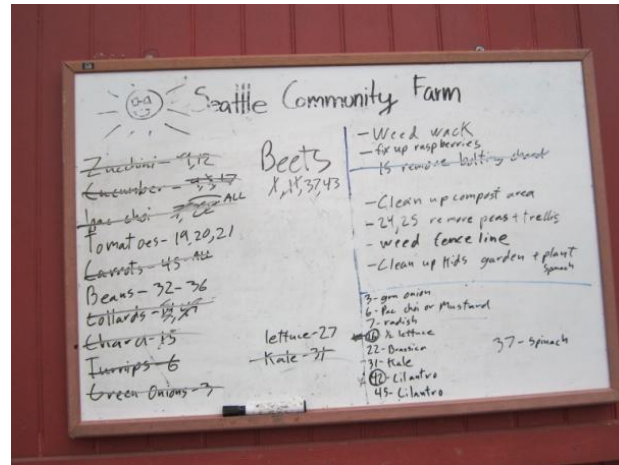 Seattle Community Farm
Zucchini - 9,12
Cucumber -
pac choi 7, 22 ALL
Tomatoes - 19,20,21
Carrots - 45 - ALL
Beans - 32-36
Collards -
Chard - 15
Turnips - 6
Green Onions - 3
Beets
37,43
lettuce - 27
Kale - 31
- Weed wack
- fix up raspberries
15 remove bolting chard
- Clean up compost area
- 24,25 remove peas + trellis
- weed fence line
- Clean up Kids garden + plant
spinach
3 - grn onion
6 - Pac choi or Mustard
7 - radish
½ lettuce
22 - Brassica
31 - Kale
42 - Cilantro
45 - Cilantro
37 - spinach